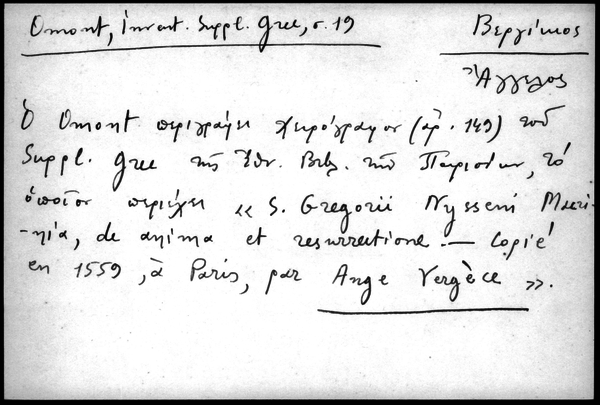 Omont, Invent. Suppl. Grec, σ. 19
Βεργίκιος
Ἄγγελος
Ὁ Omont περιγράφει χειρόγραφον (ἀρ. 149) τοῦ
Suppl. Grec τῆς Ἐθν. Βιβλ. τῶν Παρισίων, τὸ
ὁποῖον περιέχει « S. Gregorii Nysseni Macri-
-nia, de anima et resurrectione. — Copié
en 1559, à Paris, par Ange Vergèce ».